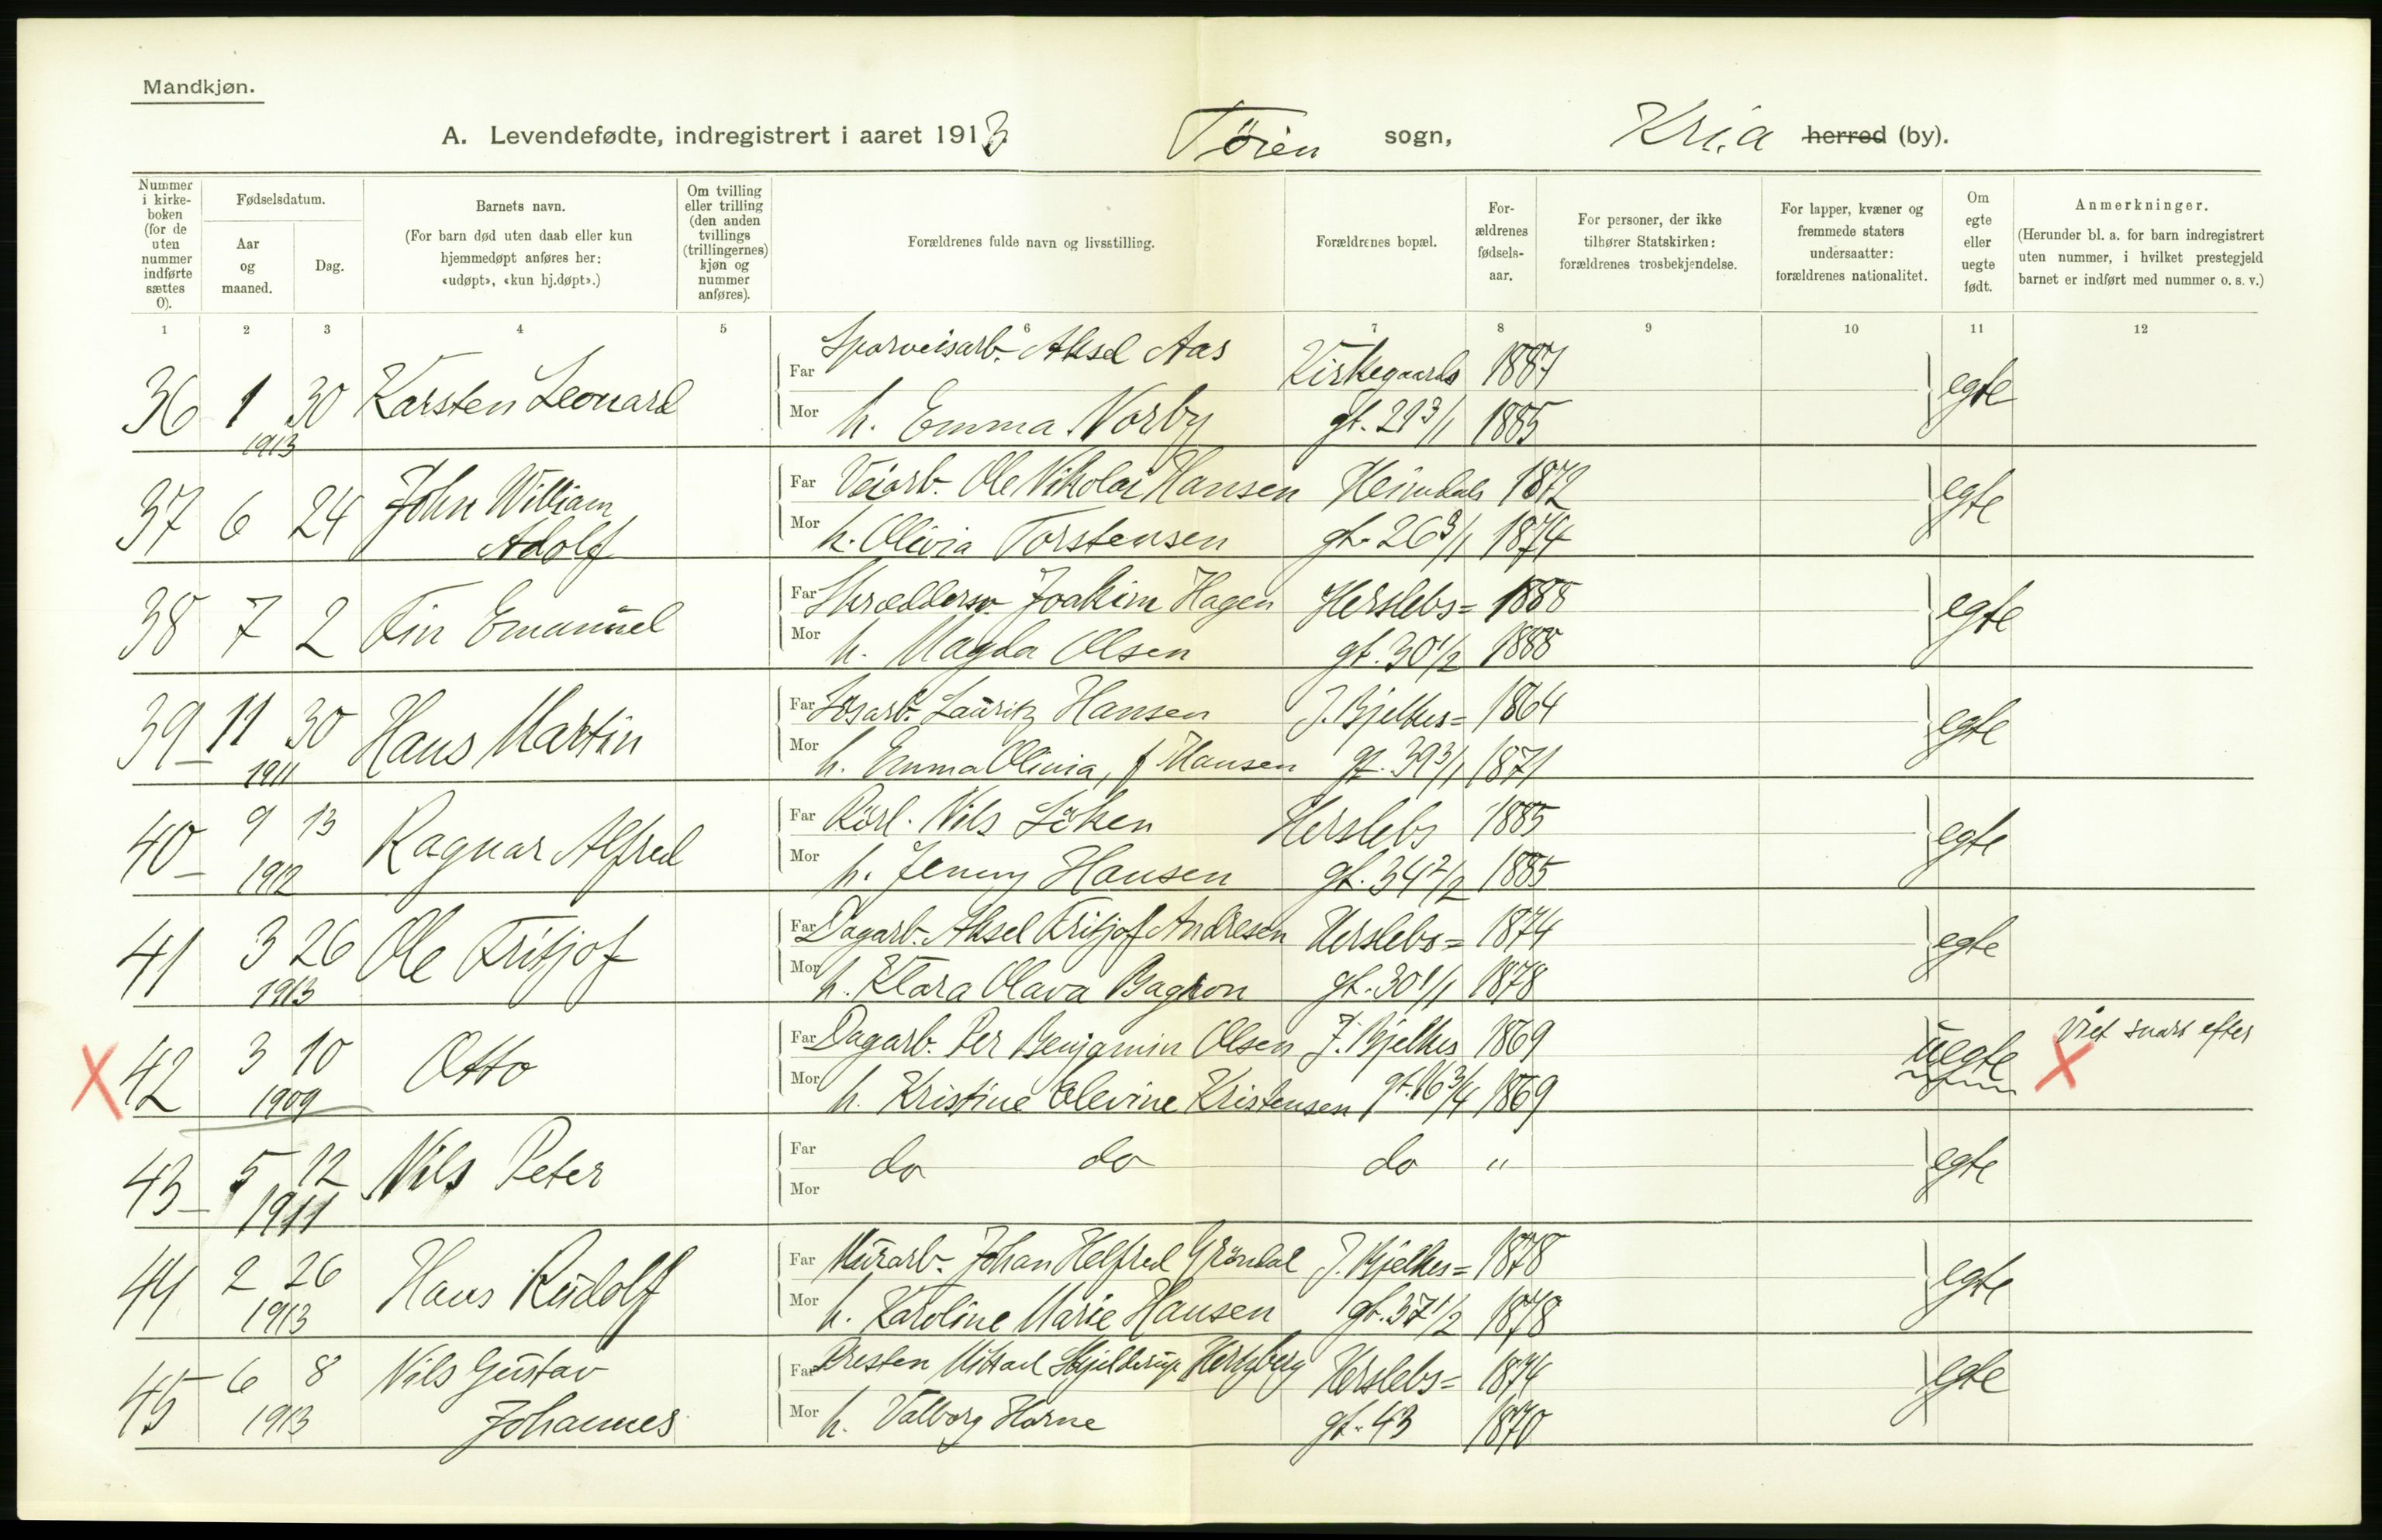 Mandkjøn.
A. Levendefødte, indregistrert i aaret 1913 Tøien sogn, Kr.ia herred (by).
Nummer i kirkeboken (for de uten nummer indførte sættes 0).
Fødselsdatum.
Aar og maaned.
Dag.
Barnets navn.
(For barn død uten daab eller kun hjemmedøpt anføres her: «udøpt», «kun hj.døpt».)
Om tvilling eller trilling (den anden tvillings (trillingernes) kjøn og nummer anføres).
Forældrenes fulde navn og livsstilling.
Forældrenes bopæl.
Forældrenes fødselsaar.
For personer, der ikke tilhører Statskirken: forældrenes trosbekjendelse.
For lapper, kvæner og fremmede staters undersaatter: forældrenes nationalitet.
Om egte eller uegte født.
Anmerkninger.
(Herunder bl. a. for barn indregistrert uten nummer, i hvilket prestegjeld barnet er indført med nummer o. s. v.)
1 2 3 4 5 6 7 8 9 10 11 12
36 1 1913 30 Karsten Leonard
Far Sporveisarb. Aksel Aas Kirkegaards 1887 egte
Mor h. Emma Norby gt. 29 3/1 1885
37 6 24 John William Adolf
Far Veiarb. Ole Nikolai Hansen Heimdals 1872 egte
Mor h. Olivia Torstensen gt. 26 3/1 1874
38 7 2 Fin Emanuel
Far Skræddersv. Joakim Hagen Herslebs= 1888 egte
Mor h. Magda Olsen gt. 30 1/2 1888
39 11 1911 30 Hans Martin
Far Løsarb. Lauritz Hansen J. Bjelkes= 1864 egte
Mor h. Emma Olivia, f. Hansen gt. 39 3/1 1871
40 9 1912 13 Ragnar Alfred
Far Rørl. Nils Löken Herslebs 1885 egte
Mor h. Jenny Hansen gt. 34 2/2 1885
41 3 1913 26 Ole Fritjof
Far Dagarb. Aksel Fritjof Andresen Herslebs= 1874 egte
Mor h. Klara Olava gt. 30 1/1 1878
X 42 3 1909 10 Otto
Far Dagarb. Per Benjamin Olsen J. Bjelkes 1869 uegte X Viet snart efter
Mor h. Kristine Olevine Kristensen gt. 16 3/4 1869
43 5 1911 12 Nils Peter
Far do do do " egte
Mor
44 2 1913 26 Hans Rudolf
Far Murarb. Johan Helfred Gröndal J. Bjelkes= 1878 egte
Mor h. Karoline Marie Hansen gt. 37 1/2 1878
45 6 1913 8 Nils Gustav Johannes
Far Presten Mikael Skjelderup Hertzberg Herslebs= 1874 egte
Mor h. Valborg Horne gt. 43 1870